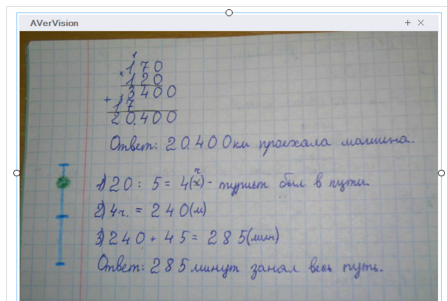 AVerVision
170
120
3400
+17
20400
Ответ: 20.400 км проехала машина.
1) 20 : 5 = 4(ч) - турист был в пути.
2) 4ч. = 240(м)
3) 240 + 45 = 285(мин)
Ответ: 285 минут занял весь путь.